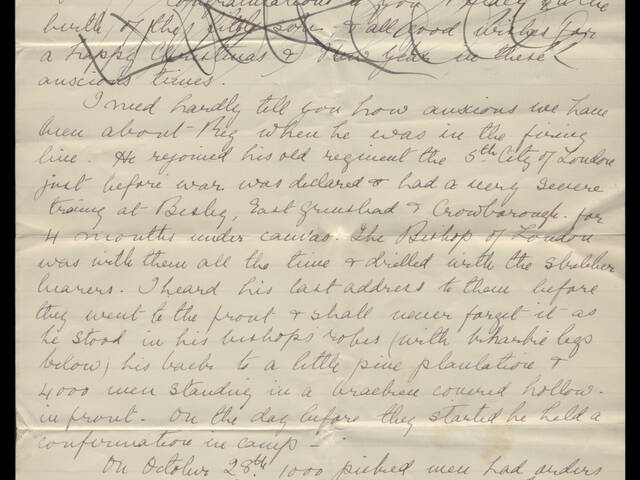 Congratulations to you & on the
birth of the fifth son, & all good wishes for
a happy Christmas & New year in these
anxious times.
I need hardly tell you how anxious we have
been about Reg when he was in the firing
line. He rejoined his old regiment the 5th City of London
just before war was declared & had a very severe
traing at Bisley, East Grinstead & Crowborough for
4 months under canvas. The Bishop of London
was with them all the time & drilled with the stretcher
bearers. I heard his last address to them before
they went to the front & shall never forget it as
he stood in his bishops robes (with khaki legs
below) his back to a little pine plantation &
4000 men standing in a bracken covered hollow
in front. On the day before they started he held a
confirmation in camp -
On October 28th 1000 picked men had orders